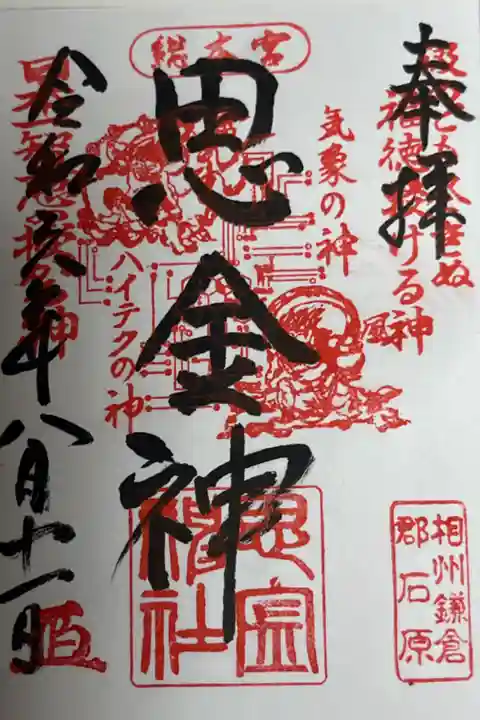 奉拝
福徳授ける神
総本宮
思金神
気象の神
風
ハイテクの神
令和六年八月十一日
思金
神社
相州鎌倉
郡石原